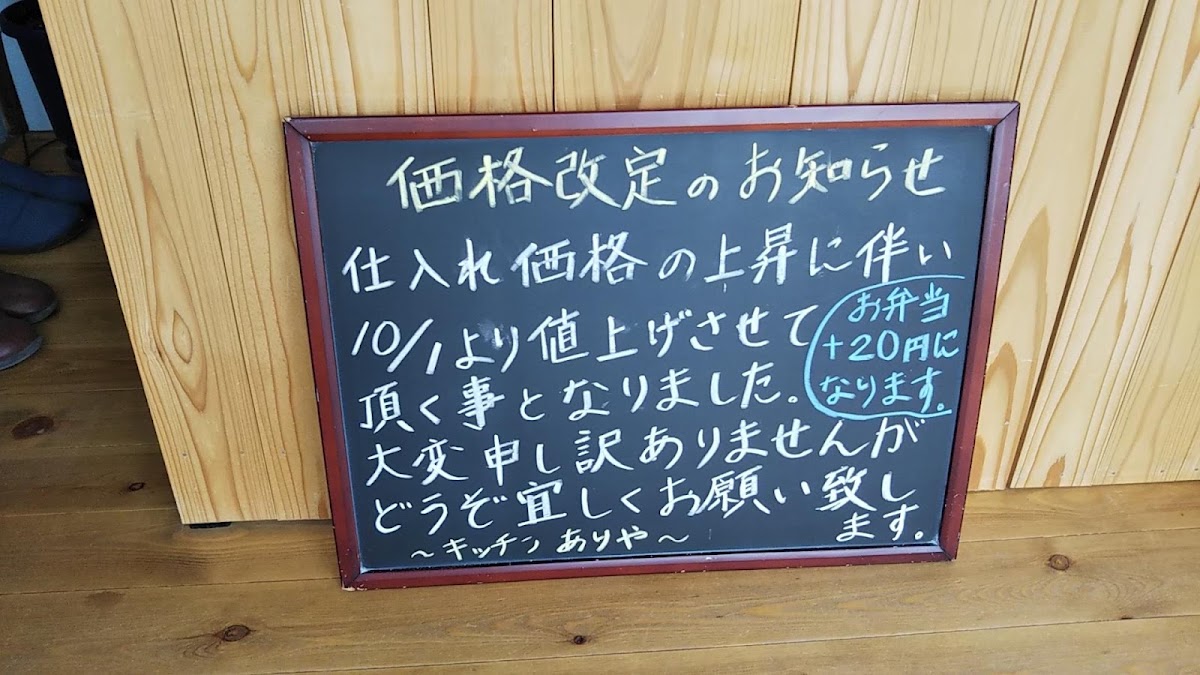 価格改定のお知らせ
仕入れ価格の上昇に伴い
10/1より値上げさせて
頂く事となりました。
お弁当
+20円に
なります。
大変申し訳ありませんが
どうぞ宜しくお願い致し
ます。
～キッチン ありや～